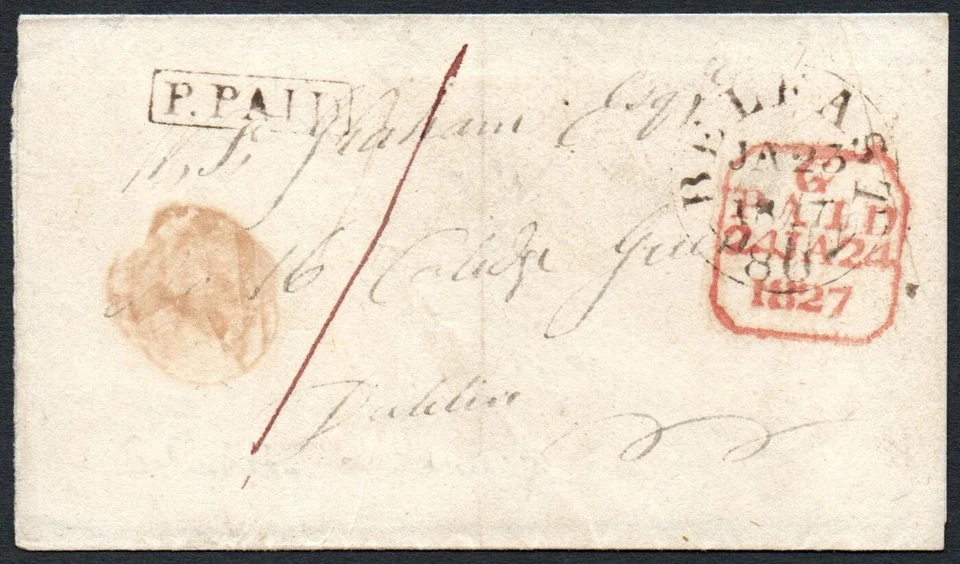 P. PAID
Graham Esqr
16 College Green
Dublin
BELFAST
JA 23
1827
80
G
PAID
24 JA 24
1827